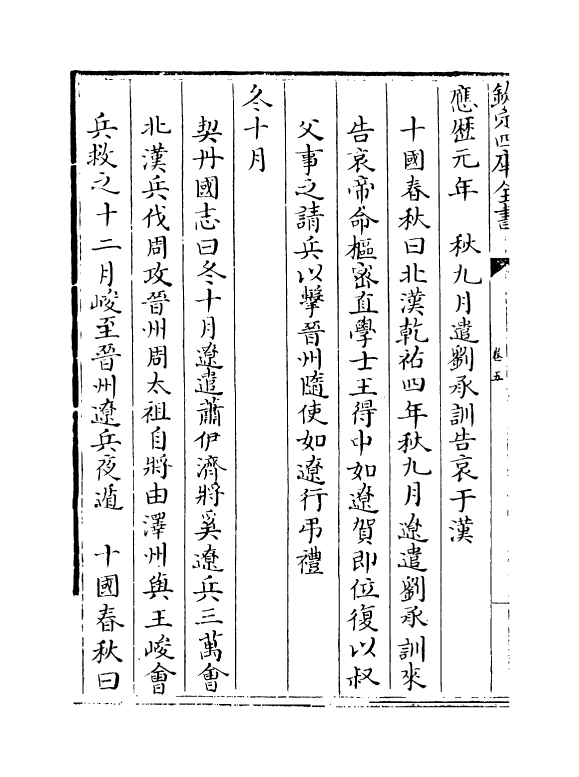 欽定四庫全書
卷五
應歷元年　秋九月遣劉承訓告哀于漢
十國春秋曰北漢乾祐四年秋九月遼遣劉承訓來
告哀帝命樞密直學士王得中如遼賀即位復以叔
父事之請兵以擊晉州隨使如遼行弔禮
冬十月
契丹國志曰冬十月遼遣蕭伊濟將奚遼兵三萬會
北漢兵伐周攻晉州周太祖自將由澤州與王峻會
兵救之十二月峻至晉州遼兵夜遁　十國春秋曰